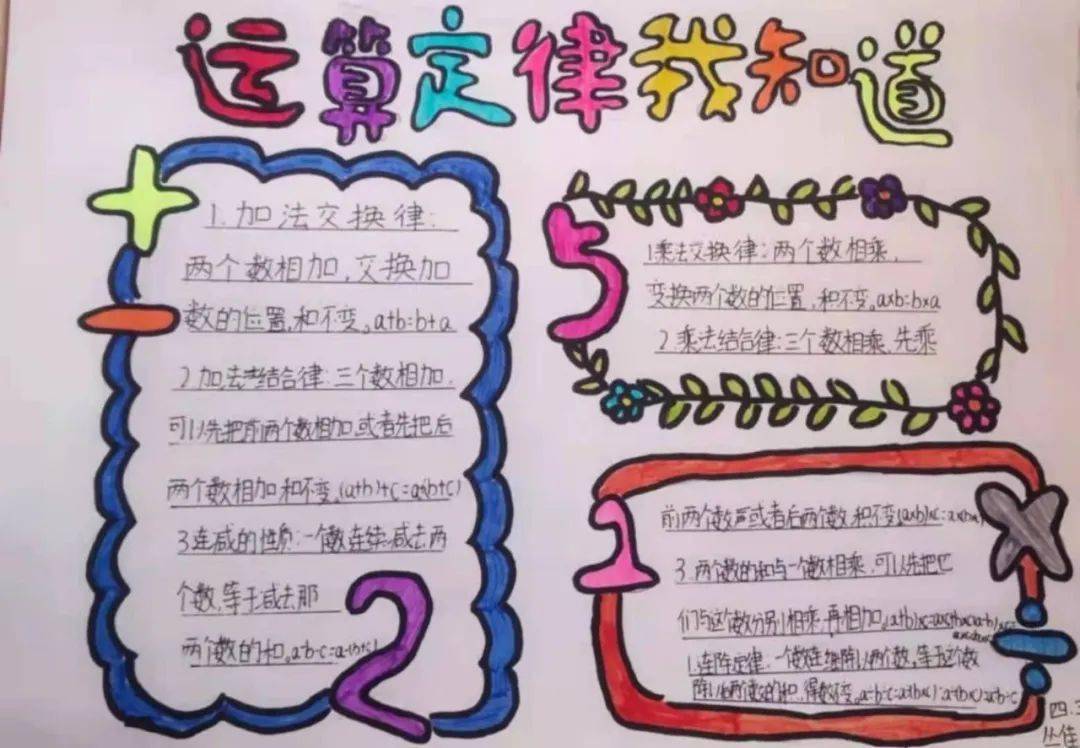 运算定律我知道
+
1.加法交换律:
两个数相加,交换加
-
数的位置,和不变。a+b=b+a
2.加法结合律:三个数相加,
可以先把前两个数相加,或者先把后
两个数相加,和不变。(a+b)+c=a+(b+c)
3.连减的性质:一个数连续减去两
个数,等于减去那
两个数的和。a-b-c=a-(b+c)
2
5
1乘法交换律:两个数相乘,
变换两个数的位置,和不变。a×b=b×a
2.乘法结合律:三个数相乘,先乘
1
前两个数或者后两个数,积不变(a×b)×c=a×(b×c)
×
3.两个数的和与一个数相乘,可以先把它
们与这个数分别相乘,再相加。(a+b)×c=a×c+b×c
÷
1.连除定律:一个数连续除以两个数,等于这个数
除以两个数的积,得数不变。
四.3
丛佳